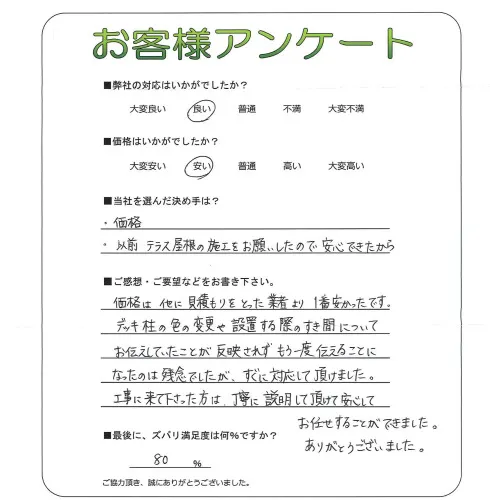 お客様アンケート
■弊社の対応はいかがでしたか？
大変良い 良い 普通 不満 大変不満
■価格はいかがでしたか？
大変安い 安い 普通 高い 大変高い
■当社を選んだ決め手は？
・価格
・以前 テラス屋根の施工をお願いしたので 安心できたから
■ご感想・ご要望などをお書き下さい。
価格は 他に見積もりをとった業者より 1番安かったです。
デッキ柱の色の変更や設置する際のすき間について
お伝えしていたことが反映されず もう一度伝えることに
なったのは残念でしたが、すぐに対応して頂けました。
工事に来て下さった方は、丁寧に説明して頂けて安心して
お任せすることができました。
ありがとうございました。
■最後に、ズバリ満足度は何％ですか？
80 ％
ご協力頂き、誠にありがとうございました。